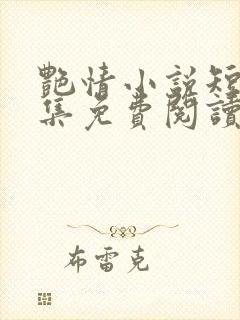 艷情小說短
集免費閱讀
布雷克